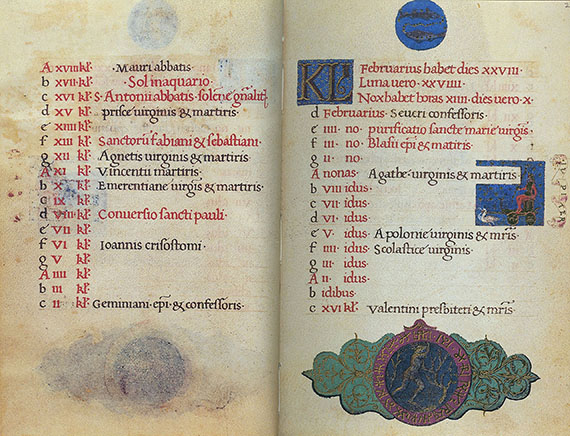 A xvii kł Mauri abbatis·
b xvii kł· Sol in aquario·
c xvi kł S· Antonii abbatis· solēne gñaliť
d xv kł· prisce virginis & martiris·
e xiiii kł·
f xiii kł· Sanctorū fabiani & sebastiani·
g xii kł· Agnetis uirginis & martiris·
A xi kł· Vincentii martiris·
b x kł· Emerentiane uirgīs & martiris·
c ix kł·
d viii kł· Conuersio sancti pauli·
e vii kł·
f VI kł· Ioannis crisostomi·
g V kł·
A iiii kł·
b iii kł·
c ii kł· Geminiani· epi & confessoris·
KL Februarius habet dies xxviii·
Luna uero· xxviiii·
Nox habet horas xiiii· dies uero·x·
2
d Februarius· Seueri confessoris·
e iiii· no· purificatio sancte marie uirgīs·
f iii· no· Blasii epi & matiris·
g ii· no·
A nonas· Agathe· uirginis & martiris
b viii idus·
c vii· idus·
d vi· idus·
e v· idus· Apolonie uirginis & mřis·
f iiii· idus· Scolastice uirginis·
g iii· idus·
A ii· idus·
b idibus
c xvi kł· Valentini presbiteri & mřis·